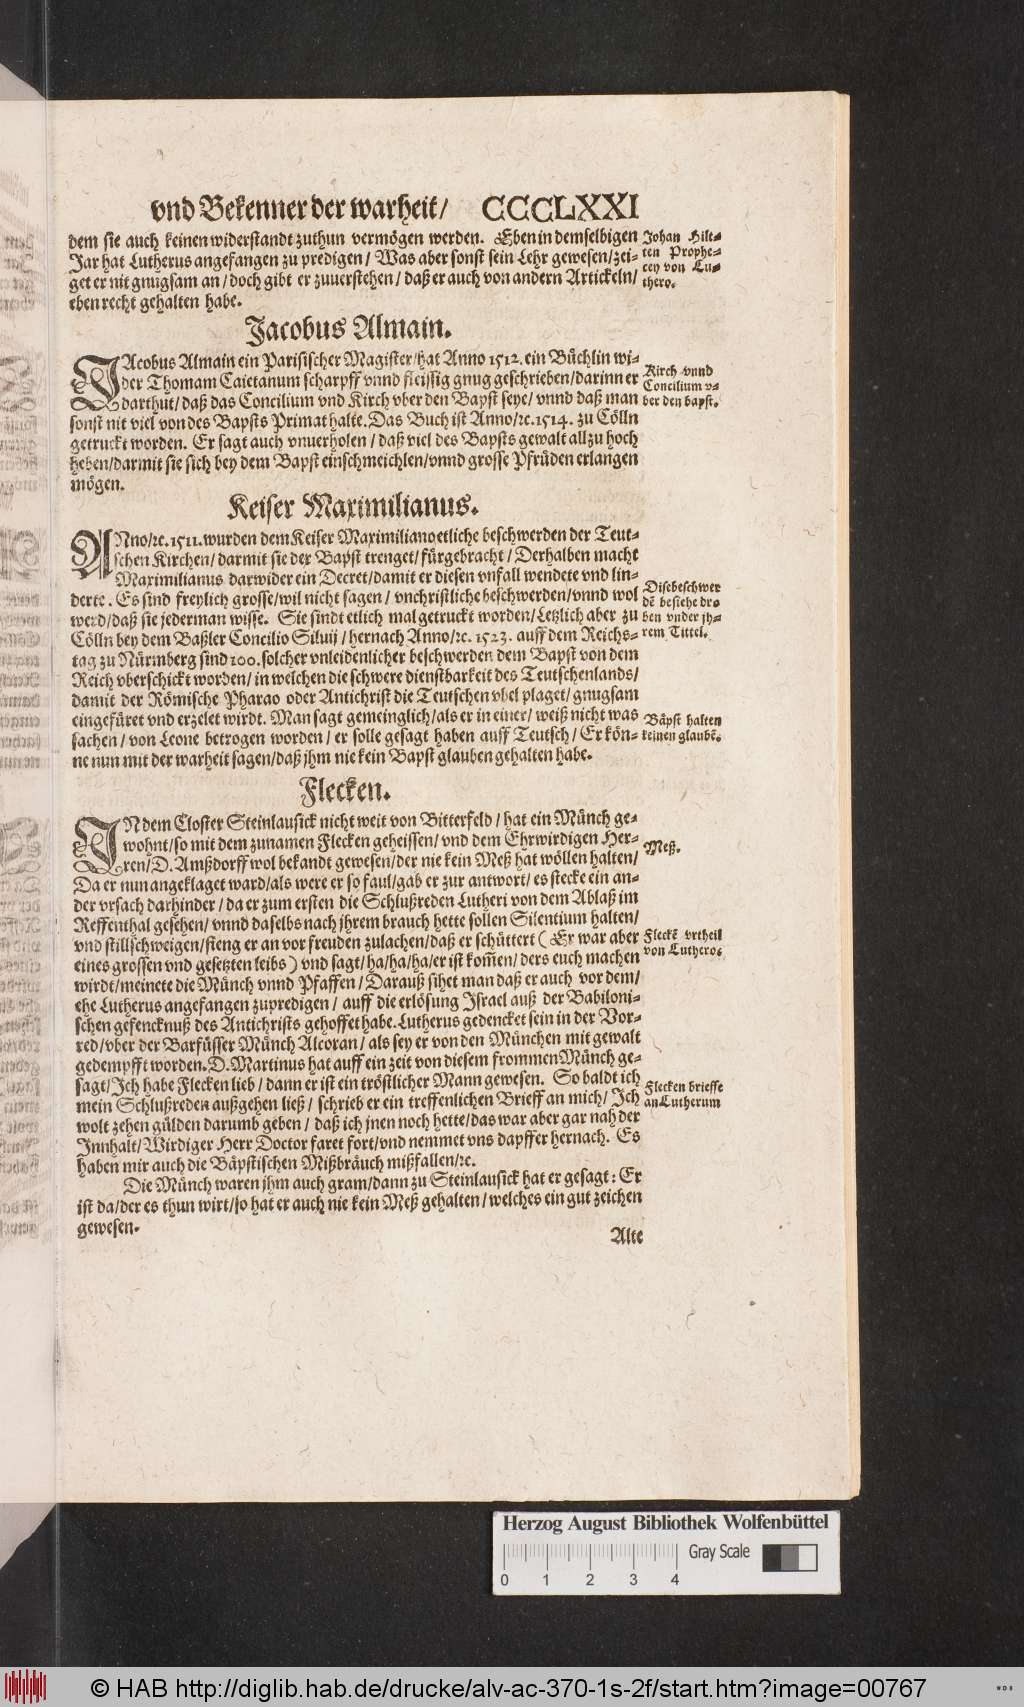 vnd Bekenner der warheit/ CCCLXXI
dem sie auch keinen widerstandt zuthun vermögen werden. Eben in demselbigen
Jar hat Lutherus angefangen zu predigen/ Was aber sonst sein Lehr gewesen/zei-
get er nit gnugsam an/doch gibt er zuuerstehen/daß er auch von andern Artickeln/
eben recht gehalten habe.
Johan Hilt-
ten Prophe-
cey von Lu-
thero.
Jacobus Almain.
JAcobus Almain ein Parisischer Magister/hat Anno 1512. ein Büchlin wi-
der Thomam Caietanum scharpff vnnd fleissig gnug geschrieben/darinn er
darthut/daß das Concilium vnd Kirch vber den Bapst seye/vnnd daß man
sonst nit viel von des Bapsts Primat halte. Das Buch ist Anno/ꝛc. 1514. zu Cölln
getruckt worden. Er sagt auch vnuerholen/daß viel des Bapsts gewalt allzu hoch
heben/darmit sie sich bey dem Bapst einschmeichlen/vnnd grosse Pfrüden erlangen
mögen.
Kirch vnnd
Concilium v-
ber den bapst.
Keiser Maximilianus.
ANno/ꝛc. 1511. wurden dem Keiser Maximiliano etliche beschwerden der Teut-
schen Kirchen/darmit sie der Bapst trenget/fürgebracht/Derhalben macht
Maximilianus darwider ein Decret/damit er diesen vnfall wendete vnd lin-
derte. Es sind freylich grosse/wil nicht sagen/vnchristliche beschwerden/vnnd wol
werd/daß sie jederman wisse. Sie sindt etlich mal getruckt worden/Letzlich aber zu
Cölln bey dem Baßler Concilio Siluij/hernach Anno/ꝛc. 1523. auff dem Reichs-
tag zu Nürmberg sind 100. solcher vnleidenlicher beschwerden dem Bapst von dem
Reich vberschickt worden/in welchen die schwere dienstbarkeit des Teutschenlands/
damit der Römische Pharao oder Antichrist die Teutschen vbel plaget/gnugsam
eingefüret vnd erzelet wirdt. Man sagt gemeinglich/als er in einer/weiß nicht was
sachen/von Leone betrogen worden/er solle gesagt haben auff Teutsch/Er kön-
ne nun mit der warheit sagen/daß jhm nie kein Bapst glauben gehalten habe.
Dise beschwer
dẽ besiehe dro
ben vnder jh-
rem Tittel.
Bäpst halten
keinen glaubẽ.
Flecken.
JN dem Closter Steinlausick nicht weit von Bitterfeld/hat ein Münch ge-
wohnt/so mit dem zunamen Flecken geheissen/vnd dem Ehrwirdigen Her-
ren/D. Amßdorff wol bekandt gewesen/der nie kein Meß hat wöllen halten/
Da er nun angeklaget ward/als were er so faul/gab er zur antwort/es stecke ein an-
der vrsach darhinder/da er zum ersten die Schlußreden Lutheri von dem Ablaß im
Reffenthal gesehen/vnnd daselbs nach jhrem brauch hette sollen Silentium halten/
vnd stillschweigen/fieng er an vor freuden zulachen/daß er schüttert (Er war aber
eines grossen vnd gesetzten leibs) vnd sagt/ha/ha/ha/er ist kom̃en/ders euch machen
wirdt/meinete die Münch vnnd Pfaffen/Darauß sihet man daß er auch vor dem/
ehe Lutherus angefangen zupredigen/auff die erlösung Israel auß der Babiloni-
schen gefencknuß des Antichrists gehoffet habe. Lutherus gedencket sein in der Vor-
red/vber der Barfüsser Münch Alcoran/als sey er von den München mit gewalt
gedempfft worden. D. Martinus hat auff ein zeit von diesem frommen Münch ge-
sagt/Ich habe Flecken lieb/dann er ist ein tröstlicher Mann gewesen. So baldt ich
mein Schlußreden außgehen ließ/schrieb er ein treffenlichen Brieff an mich/Ich
wolt zehen gülden darumb geben/daß ich jnen noch hette/das war aber gar nah der
Innhalt/Wirdiger Herr Doctor faret fort/vnd nemmet vns dapffer hernach. Es
haben mir auch die Bäpstischen Mißbräuch mißfallen/ꝛc.
Die Münch waren jhm auch gram/dann zu Steinlausick hat er gesagt: Er
ist da/der es thun wirt/so hat er auch nie kein Meß gehalten/welches ein gut zeichen
gewesen.
Meß.
Fleckẽ vrtheil
von Luthero.
Flecken brieffe
an Lutherum
Alte
Herzog August Bibliothek Wolfenbüttel
Gray Scale
0 1 2 3 4
© HAB http://diglib.hab.de/drucke/alv-ac-370-1s-2f/start.htm?image=00767